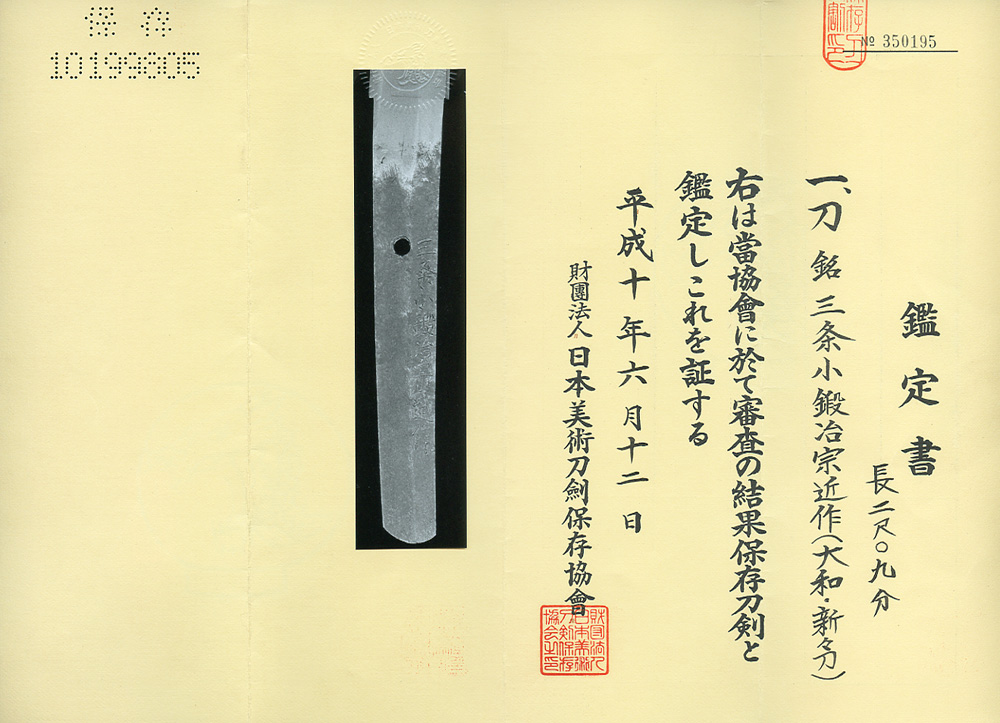 鑑定書
長二尺〇九分
一、刀 銘 三条小鍛冶宗近作(大和・新々刀)
右は當協會に於て審査の結果保存刀剣と
鑑定しこれを証する
平成十年六月十二日
財團法人 日本美術刀劍保存協會
財団法人日本美術刀剣保存協会之印
№ 350195
保存
10199805